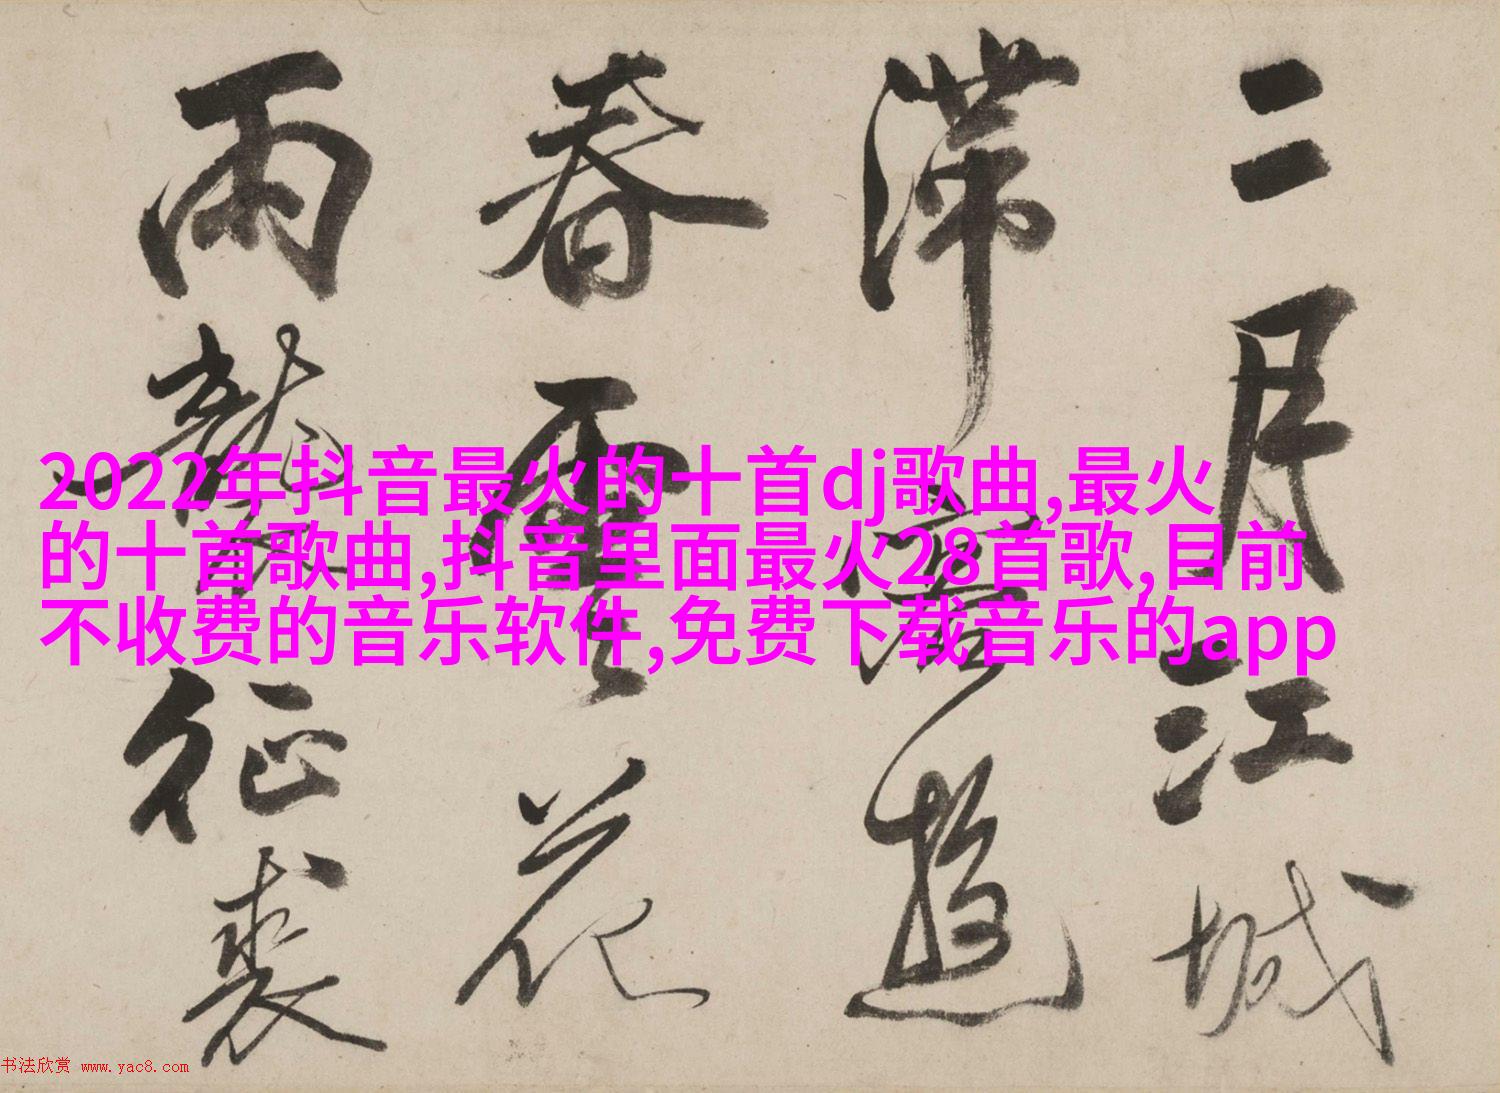 二月江城
滞客遊
春雲花
雨襲征裘
2022年抖音最火的十首dj歌曲,最火
的十首歌曲,抖音里面最火28首歌,目前
不收费的音乐软件,免费下载音乐的app
书法欣赏 www.yac8.com